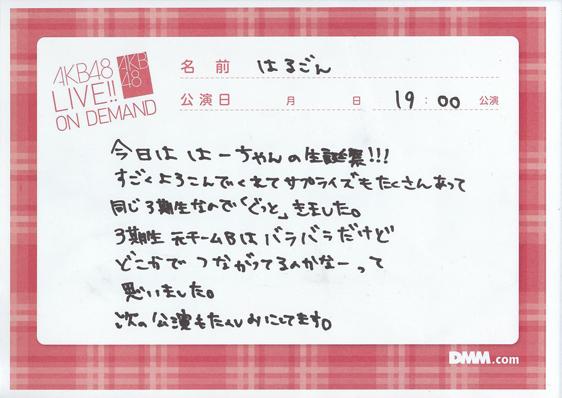 AKB48
LIVE!!
ON DEMAND
AKB
48
名前 はるごん
公演日 月 日 19:00 公演
今日は はーちゃんの生誕祭!!!
すごくよろこんでくれてサプライズもたくさんあって
同じ3期生なので「ぐっと」きました。
3期生 元チームBはバラバラだけど
どこかで つながってるのかなーって
思いました。
次の公演もたのしみにしてます。
DMM.com